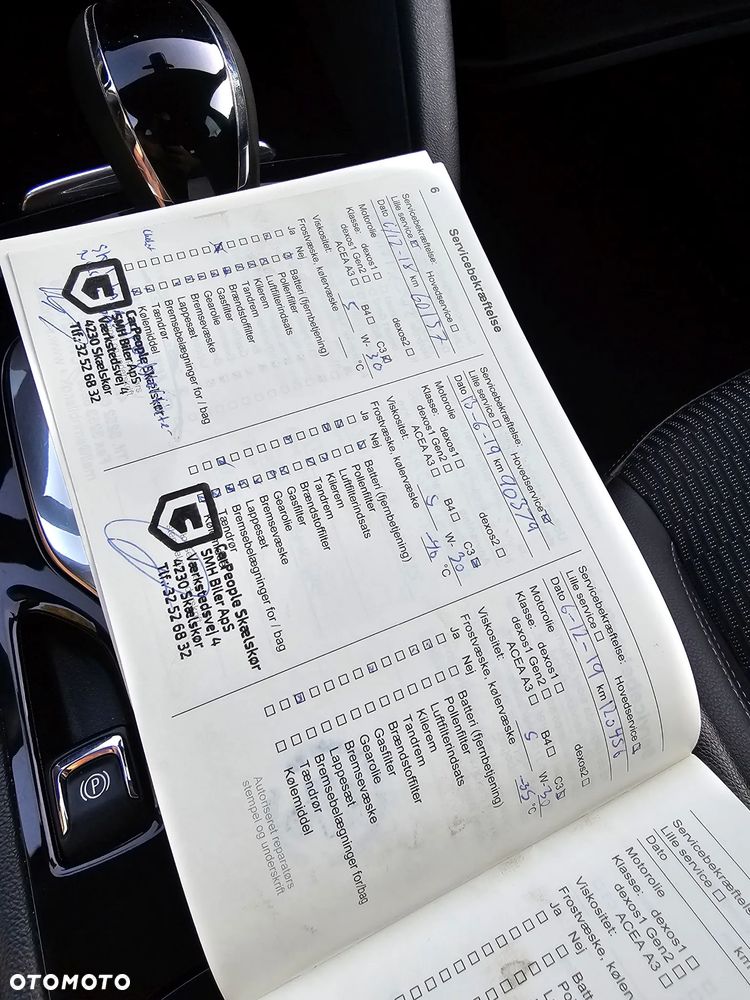 6
Servicebekræftelse
Servicebekræftelse:
Lille service Hovedservice
Dato 6/12-18 km 60157
Motorolie
Klasse: dexos1 dexos2
dexos1 Gen2
ACEA A3 B4 C3
Viskositet: 5 W- 30
Frostvæske, kølervæske °C
Ja Nej
Batteri (fjernbetjening)
Pollenfilter
Luftfilterindsats
Kilerem
Tandrem
Brændstoffilter
Gasfilter
Gearolie
Bremsevæske
Lappesæt
Bremsebelægninger for / bag
Tændrør
Kølemiddel
CarPeople Skælskør
SMH Biler ApS
Værkstedsvej 4
4230 Skælskør
Tlf.: 32 52 68 32
Servicebekræftelse:
Lille service Hovedservice
Dato 13-6-19 km 90579
Motorolie
Klasse: dexos1 dexos2
dexos1 Gen2
ACEA A3 B4 C3
Viskositet: 5 W- 30
Frostvæske, kølervæske -40 °C
Ja Nej
Batteri (fjernbetjening)
Pollenfilter
Luftfilterindsats
Kilerem
Tandrem
Brændstoffilter
Gasfilter
Gearolie
Bremsevæske
Lappesæt
Bremsebelægninger for / bag
Tændrør
CarPeople Skælskør
SMH Biler ApS
Værkstedsvej 4
4230 Skælskør
Tlf.: 32 52 68 32
Servicebekræftelse:
Lille service Hovedservice
Dato 6-12-19 km 120456
Motorolie
Klasse: dexos1 dexos2
dexos1 Gen2
ACEA A3 B4 C3
Viskositet: 5 W- 30
Frostvæske, kølervæske -35 °C
Ja Nej
Batteri (fjernbetjening)
Pollenfilter
Luftfilterindsats
Kilerem
Tandrem
Brændstoffilter
Gasfilter
Gearolie
Bremsevæske
Lappesæt
Bremsebelægninger for/bag
Tændrør
Kølemiddel
Autoriseret reparatørs
stempel og underskrift
Servicebekræftelse
Servicebekræftelse:
Lille service
Dato km
Motorolie
Klasse: dexos1
dexos1 Gen2
ACEA A3
Viskositet:
Frostvæske, køler
Ja Nej
P
OTOMOTO